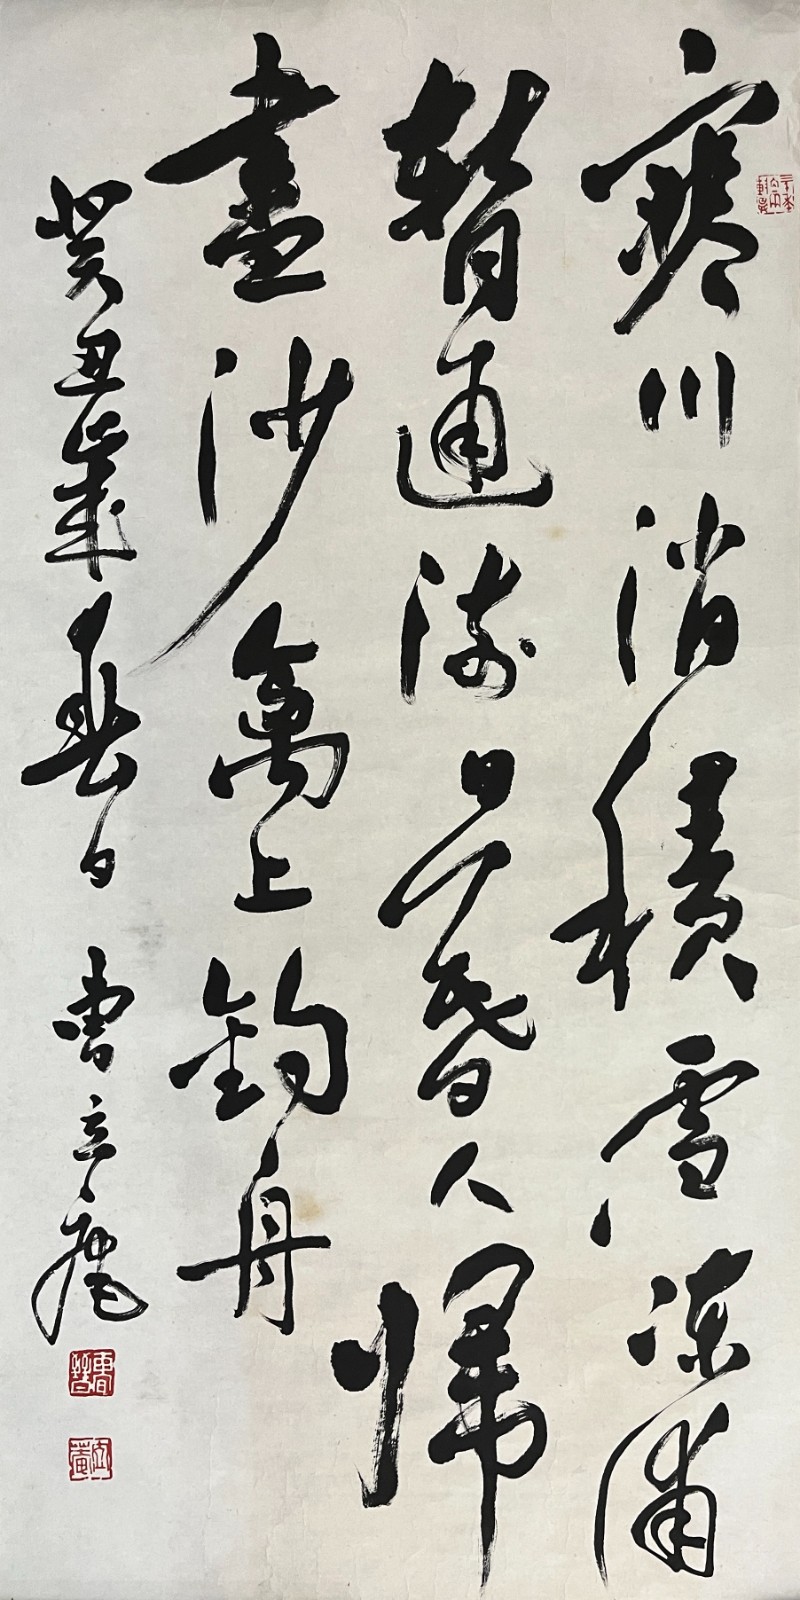 寒川消積雪凍浦
暫通流日暮人歸
盡沙禽上釣舟
癸丑歲春日 曹立庵